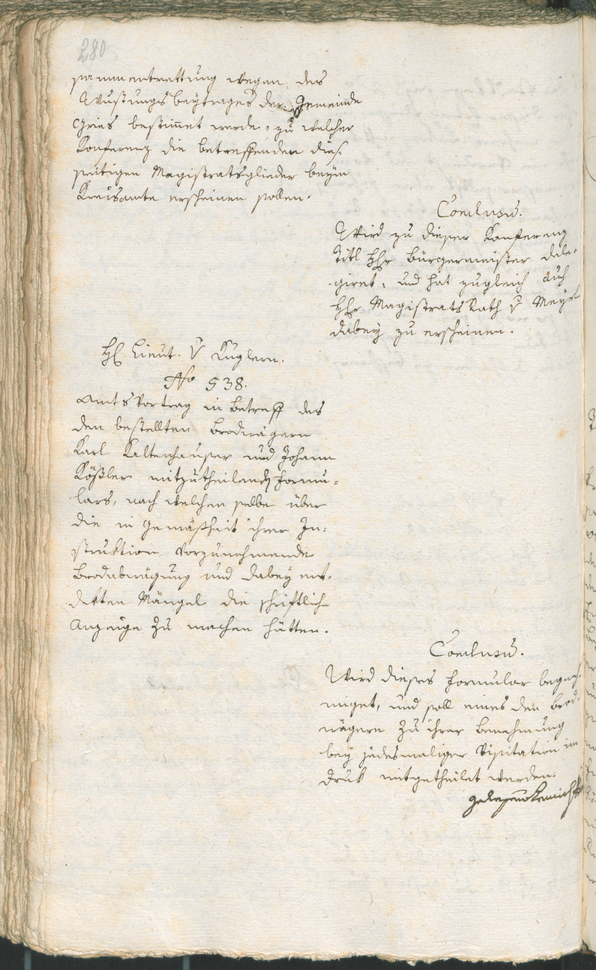 280
sammentrettung wegen des
Wustungsbeytrages der Gemeinde
Gries bestimmt werde, zu welcher
Konferenz die betreffenden dies¬
seitigen Magistratsglieder beym
Kreisamte erscheinen sollen.
Conclusum.
Wird zu dieser Konferenz
Titl Hhr Bürgermeister dele¬
giret, und hat zugleich auch
Hhr Magistrats Rath v Mayrl
dabey zu erscheinen.
H Lieut. v Küglern.
No 538.
Amts Vortrag in Betreff des
den bestellten Brodwägern
Karl Kaltenhauser und Johann
Kößler mitzutheilenden Formu¬
lars, nach welchen selbe über
die in Gemäßheit ihrer In¬
struktion vorzunehmende
Brodabwägung und dabey ent¬
dekten Mängel die schriftliche
Anzeige zu machen hätten.
Conclusum.
Wird dieses Formular begneh¬
miget, und soll eines den Brod¬
wägern zu ihrer Benehmung
bey jedesmaliger Visitation im
Druk mitgetheilet werden.